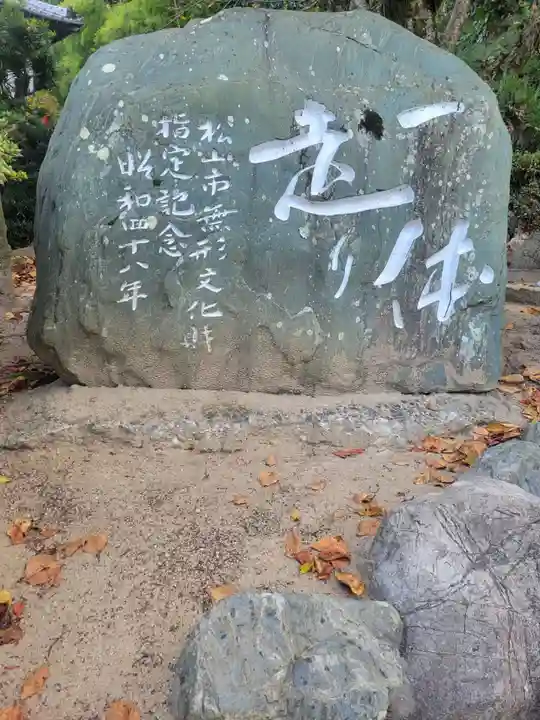 一体
走り
松山市無形文化財
指定記念
昭和四十八年